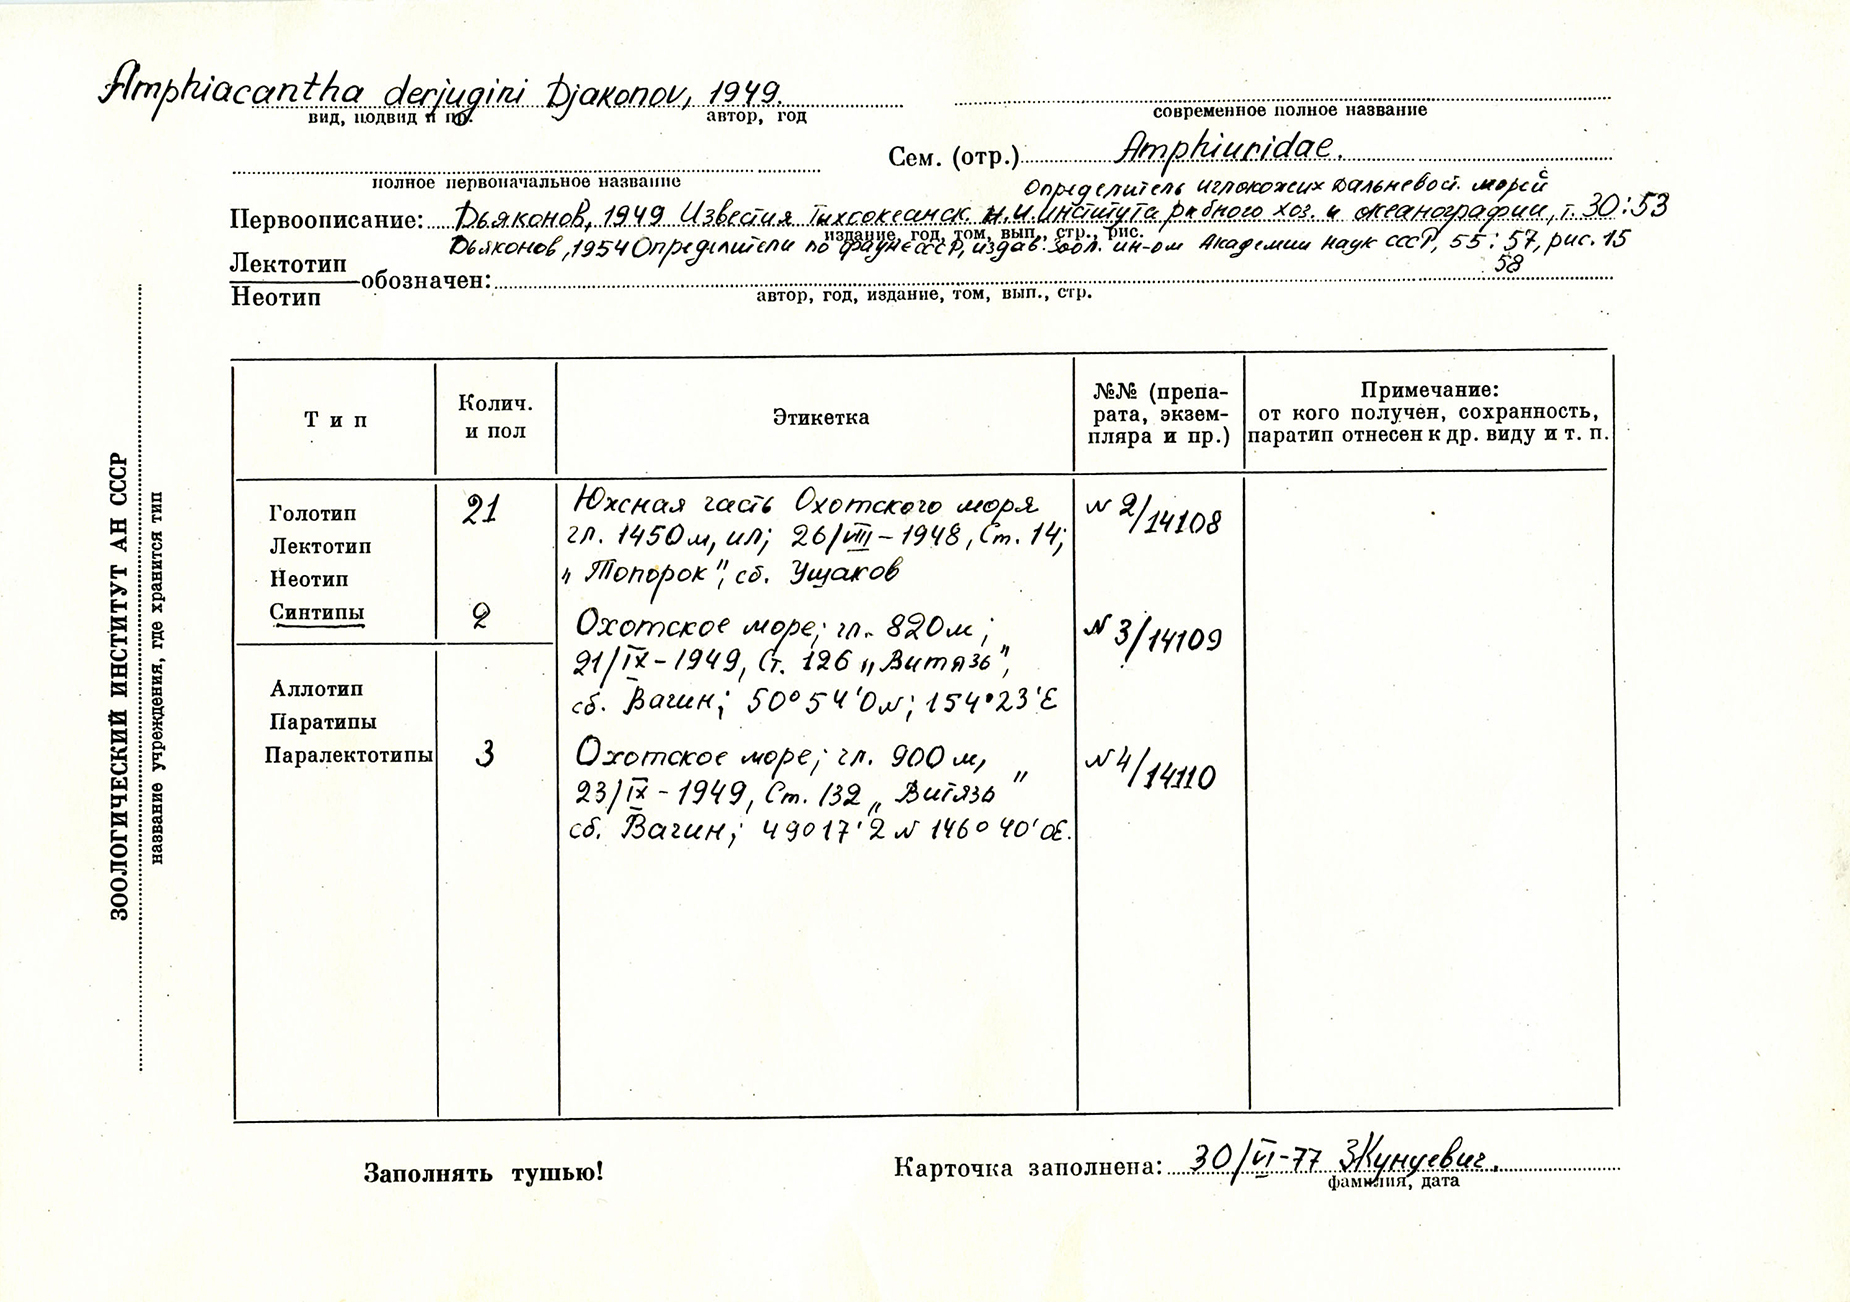 Amphiacantha derjugini Djakonov, 1949.
вид, подвид и пр.
автор, год
современное полное название
Сем. (отр.) Amphiuridae.
полное первоначальное название
Определитель иглокожих дальневост. морей
Первоописание: Дьяконов, 1949 Известия Тихоокеанск. н.и. института рыбного хоз. и океанографии, т. 30:53
издание, год, том, вып., стр., рис.
Дьяконов, 1954 Определители по фауне СССР, издав. Зоол. ин-ом Академии наук СССР, 55: 57, рис. 15
58
Лектотип
Неотип
обозначен:
автор, год, издание, том, вып., стр.
ЗООЛОГИЧЕСКИЙ ИНСТИТУТ АН СССР
название учреждения, где хранится тип
Тип
Колич. и пол
Этикетка
№№ (препа-
рата, экзем-
пляра и пр.)
Примечание:
от кого получен, сохранность,
паратип отнесен к др. виду и т. п.
Голотип
Лектотип
Неотип
Синтипы
Аллотип
Паратипы
Паралектотипы
21
Южная часть Охотского моря
гл. 1450м, ил; 26/VIII-1948, Ст. 14;
„Топорок", сб. Ушаков
N 2/14108
2
Охотское море; гл. 820м;
21/IX-1949, Ст. 126 „Витязь",
сб. Вагин; 50°54'0N; 154°23'E
N 3/14109
3
Охотское море; гл. 900м,
23/IX-1949, Ст. 132 „Витязь"
сб. Вагин; 49017'2 N 146°40'0E.
N 4/14110
Заполнять тушью!
Карточка заполнена: 30/VI-77 ЗКунцевич.
фамилия, дата